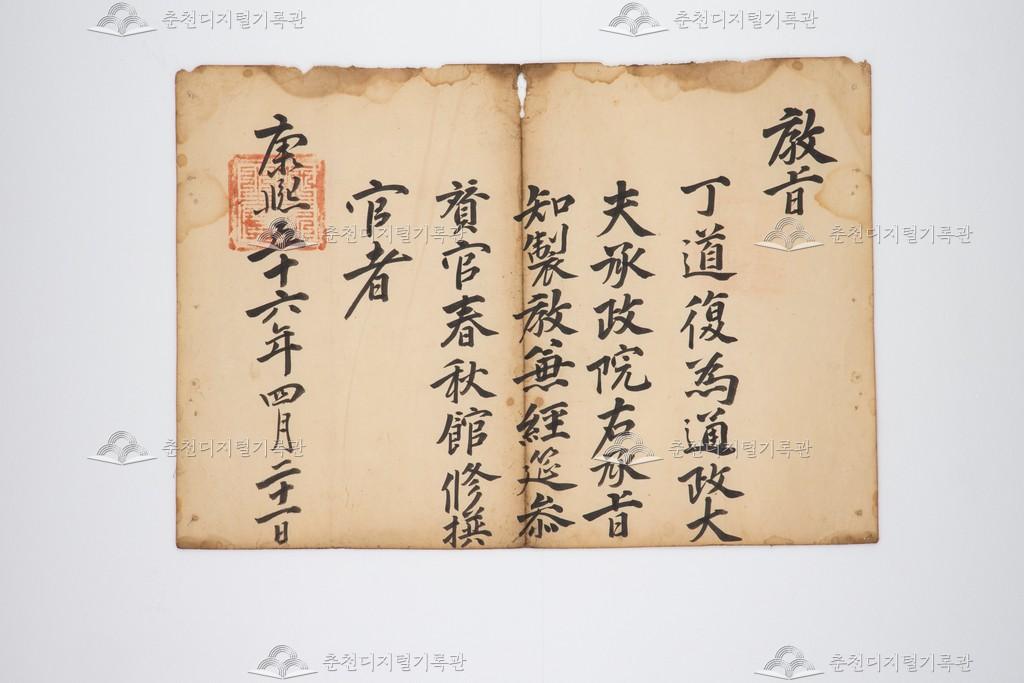 춘천디지털기록관
춘천디지털기록관
敎旨
丁道復為通政大
夫承政院右承旨
知製敎兼經筵叅
賛官春秋館修撰
官者
康熙五十六年四月二十一日
춘천디지털기록관
춘천디지털기록관
춘천디지털기록관
춘천디지털기록관
춘천디지털기록관
춘천디지털기록관